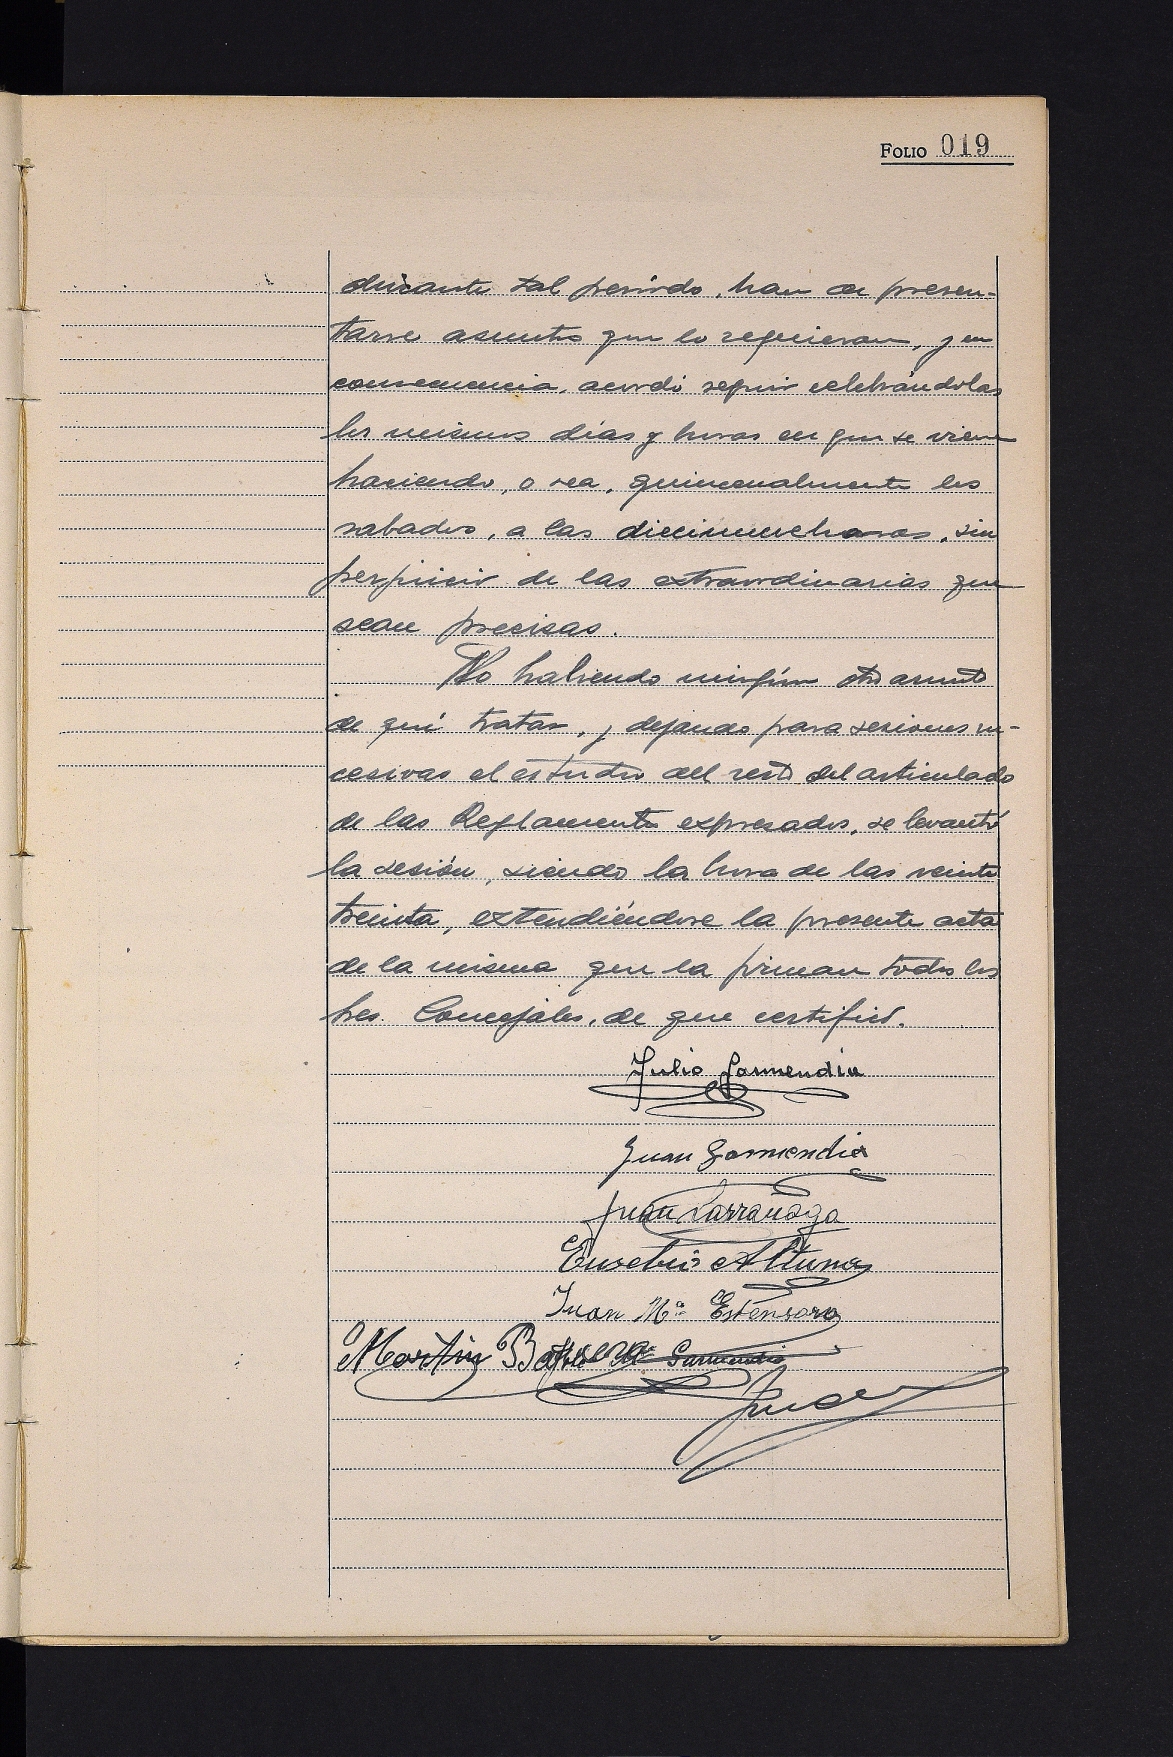 FOLIO 019
durante tal periodo, han de presen-
tarse asuntos que lo requieran, y en
consecuencia, acordó seguir celebrándolas
los mismos días y horas en que se viene
haciendo, o sea, quincenalmente los
sabados, a las diecinueve horas, sin
perjuicio de las extraordinarias que
sean precisas.
No habiendo ningún otro asunto
de qué tratar, y dejando para sesiones su-
cesivas el estudio del resto del articulado
de las Reglamento expresados, se levantó
la sesión, siendo la hora de las veinte
treinta, extendiéndose la presente acta
de la misma que la firman todos los
Sres. Concejales, de que certifico.
Julio Garmendia
Juan Garmendia
Juan Larrañaga
Eusebio Altuna
Juan Mª Esténsoro
Martin Garmendia